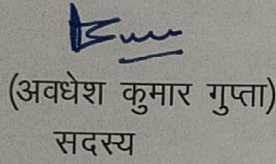 (अवधेश कुमार गुप्ता)
सदस्य